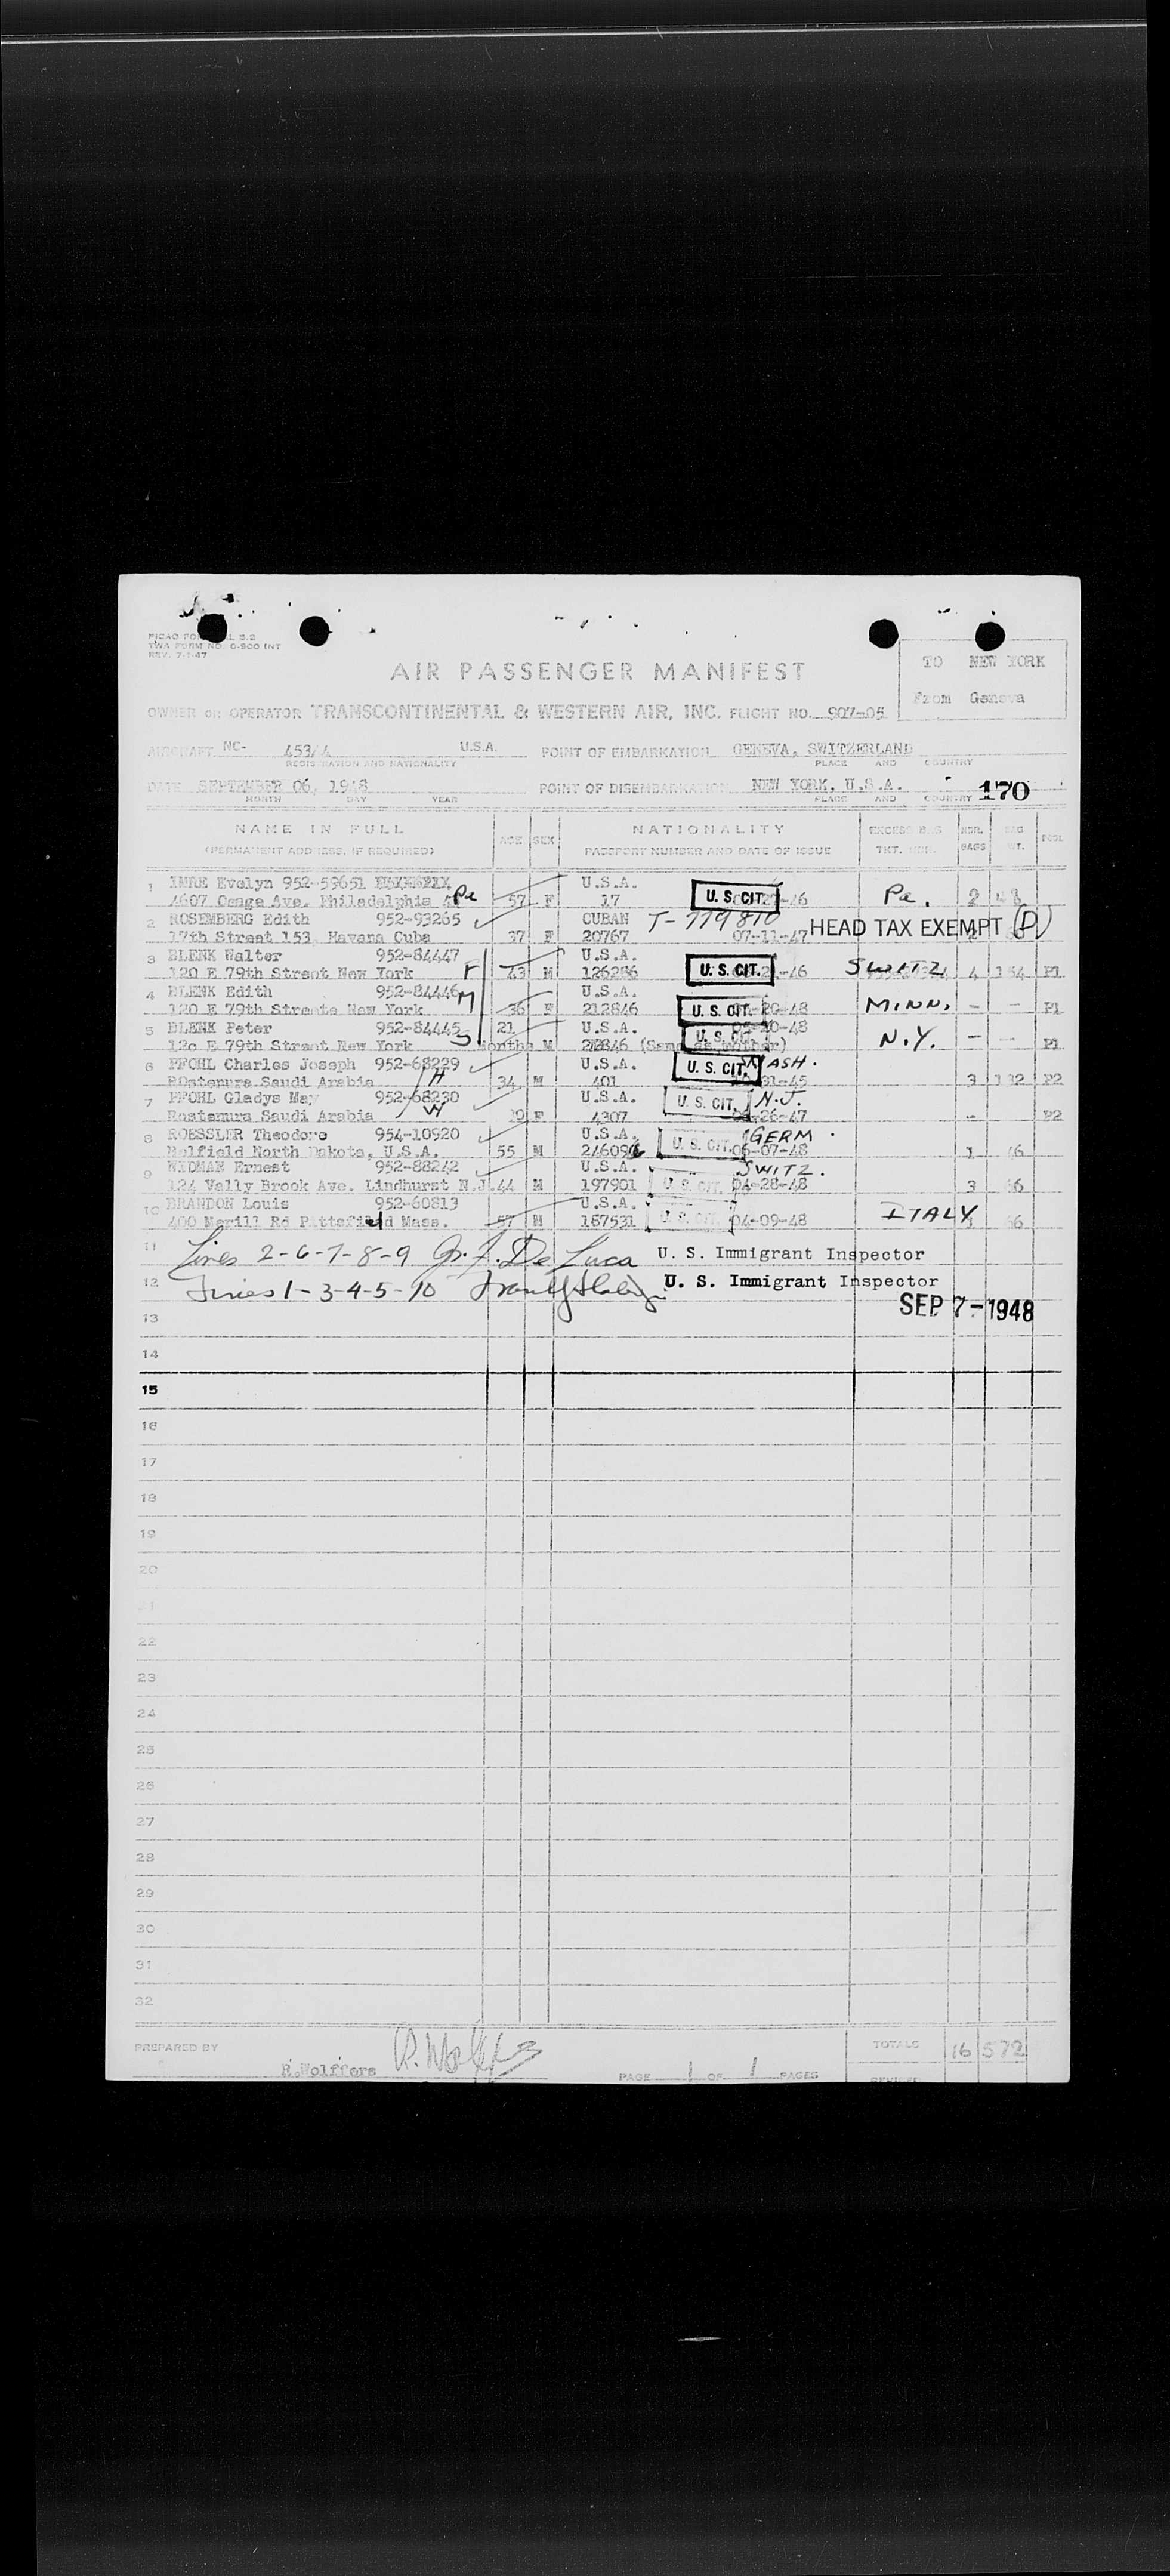 TWA FORM NO. 0-900 INT
REV. 7-1-47
AIR PASSENGER MANIFEST
TO NEW YORK
From Geneva
OWNER OR OPERATOR TRANSCONTINENTAL & WESTERN AIR, INC. FLIGHT NO. 907-05
AIRCRAFT NC- U.S.A. POINT OF EMBARKATION GENEVA, SWITZERLAND
REGISTRATION AND NATIONALITY PLACE AND COUNTRY
DATE SEPTEMBER 06, 1948 POINT OF DISEMBARKATION NEW YORK, U.S.A. 170
MONTH DAY YEAR PLACE AND COUNTRY
NAME IN FULL AGE SEX NATIONALITY EXCESS BAG NBR. BAG
(PERMANENT ADDRESS, IF REQUIRED) PASSPORT NUMBER AND DATE OF ISSUE TKT. BAGS WT. POOL
1 IMRE Evelyn 952-59651 U.S.A.
4607 Osage Ave. Philadelphia Pa 57 F 17 U. S. CIT. -46 Pa. 2
2 ROSEMBERG Edith 952-93265 CUBAN T-779810
17th Street 153 Havana Cuba 37 F 20767 07-11-47 HEAD TAX EXEMPT (P)
3 BLENK Walter 952-84447 U.S.A.
120 E 79th Street New York F 43 M 126286 U. S. CIT. -46 SWITZ 4 154 P1
4 BLENK Edith 952-84446 U.S.A.
120 E 79th Streete New York M 36 F 212846 U. S. CIT. -20-48 MINN. - - P1
5 BLENK Peter 952-84445 21 U.S.A. -20-48
12o E 79th Street New York S Months M (Same as mother) U. S. CIT. N.Y. - - P1
6 PFOHL Charles Joseph 952-68229 U.S.A. WASH.
Rastenura Saudi Arabia H 34 M 401 U. S. CIT. -31-45 3 132 P2
7 PFOHL Gladys May 952-68230 U.S.A. N.J.
Rastenura Saudi Arabia W F 4307 U. S. CIT. -26-47 - P2
8 ROESSLER Theodore 954-10920 U.S.A. GERM.
Belfield North Dakota, U.S.A. 55 M 24609 U. S. CIT. 06-07-48 1
9 WIDMAN Ernest 952-88242 U.S.A. SWITZ.
124 Vally Brook Ave. Lindhurst N.J. 44 M 197901 U. S. CIT. 04-28-48 3 66
10 BRANDON Louis 952-60813 U.S.A.
400 Merill Rd Pittsfield Mass. 57 M 187531 U. S. CIT. 04-09-48 ITALY 66
11 Lines 2-6-7-8-9 De Luca U. S. Immigrant Inspector
12 Lines 1-3-4-5-10 U. S. Immigrant Inspector
13 SEP 7-1948
14
15
16
17
18
19
20
21
22
23
24
25
26
27
28
29
30
31
32
PREPARED BY TOTALS 16 572
R.Wolffers
PAGE 1 OF 1 PAGES